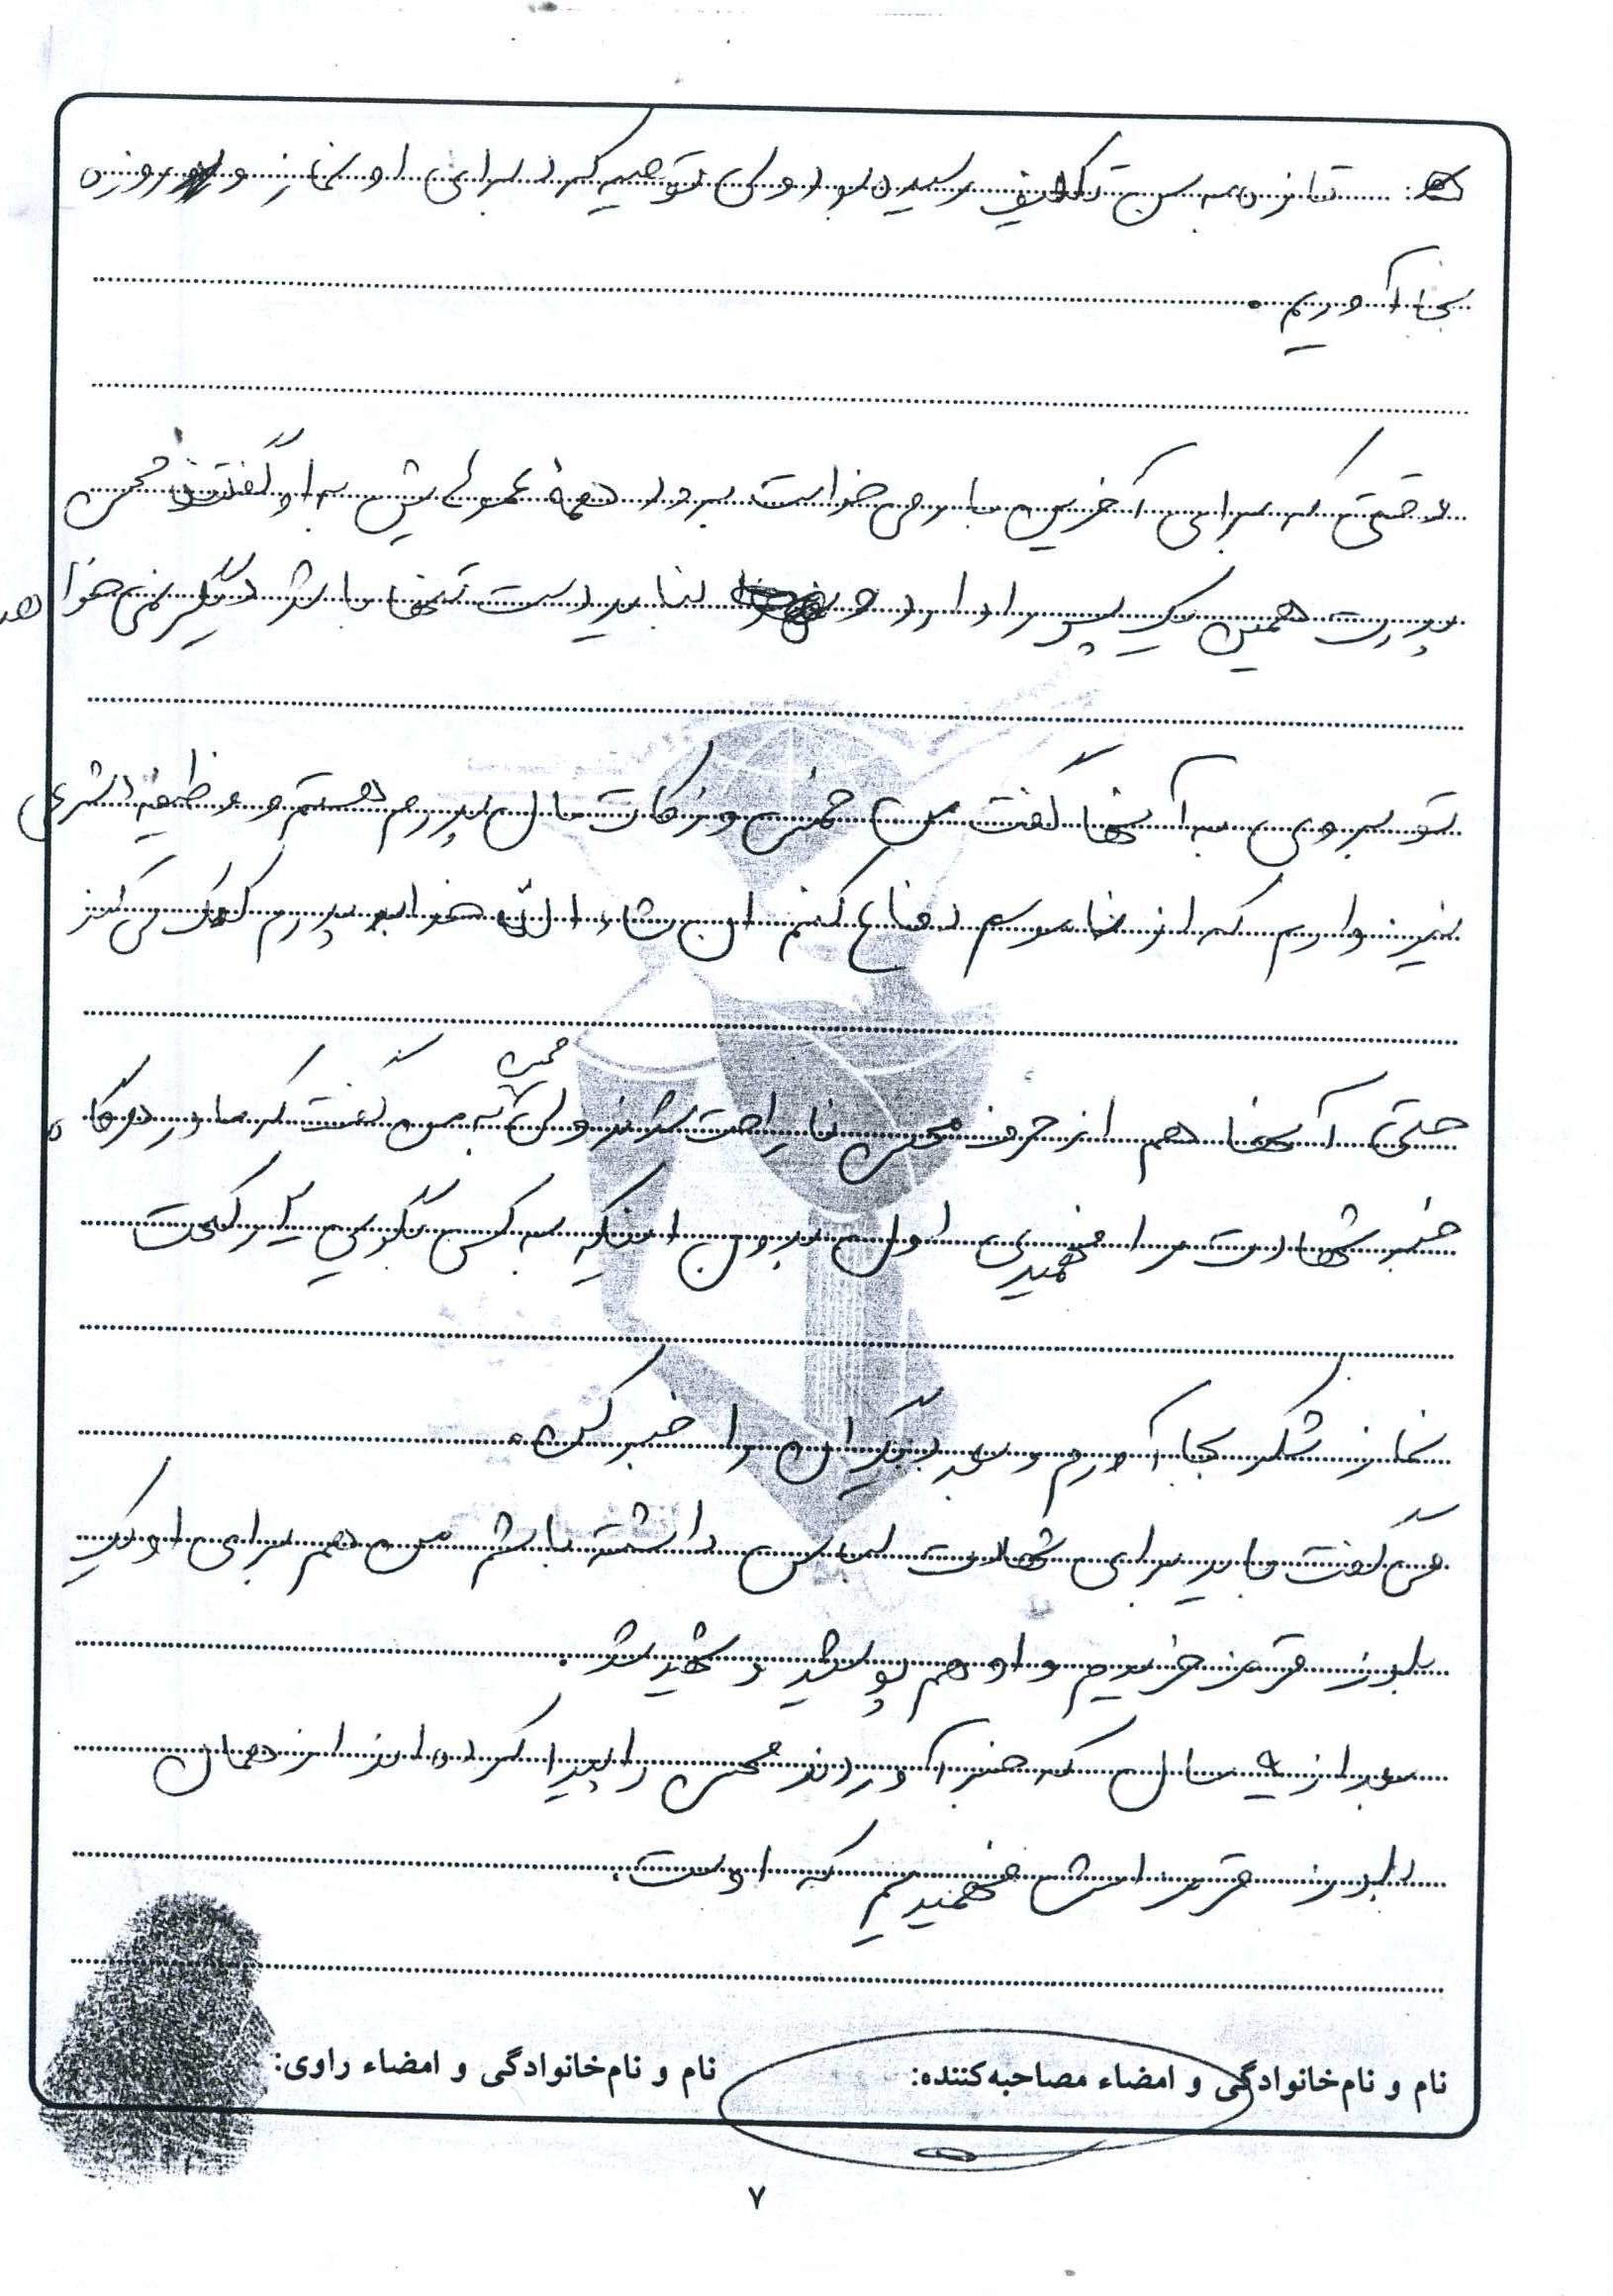 تازه به سن تکلیف رسیده بود ولی توصیه کرد برای او نماز و روزه
بجا آوریم.
وقتی که برای آخرین بار می خواست برود همه عموهایش به او گفتند محسن
پدرت همین یک پسر را دارد و نبایدست تنها باشد دیگر نمی خواهد
تو بروی به آنها گفت من خمس و زکات مال پدرم هستم و وظیفه شرعی
نیز دارم که از ناموسم دفاع کنم ان شاء الله خدا به پدرم کمک می کند
حتی آنها هم از حرف محسن ناراحت شدند ولی محسن به من گفت که مادر هرگاه
خبر شهادت مرا فهمیدی اول بدون اینکه به کسی بگویی یک رکعت
نماز شکر بجا آورم و بعد دیگران را خبر کن.
می گفت باید برای شهادت لباس داشته باشم من هم برای او یک
بلوز قرمز خریدم و او هم پوشید و شهید شد.
بعد از ۹ سال که خبر آوردند محسن را پیدا کرده اند از همان
بلوز قرمز اش فهمیدیم که اوست.
نام و نام‌خانوادگی و امضاء مصاحبه‌کننده: نام و نام‌خانوادگی و امضاء راوی:
۷